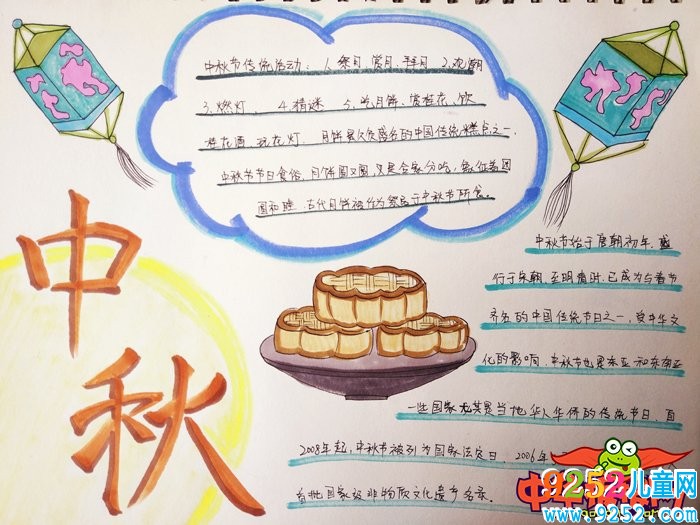 中秋节传统活动：1.祭月、赏月、拜月 2.观潮
3.燃灯、 4.猜谜 5.吃月饼、赏桂花、饮
桂花酒 玩花灯。月饼是久负盛名的中国传统糕点之一
中秋节节日食俗。月饼圆又圆，又是合家分吃，象征着团
圆和睦。古代月饼被作为祭品于中秋节所食。
中秋
中秋节始于唐朝初年，盛
行于宋朝，至明清时，已成为与春节
齐名的中国传统节日之一，受中华文
化的影响，中秋节也是东亚和东南亚
一些国家尤其是当地华人华侨的传统节日，自
2008年起，中秋节被列为国家法定日，2006年
首批国家级非物质文化遗产名录。
9252儿童网
www.9252.com